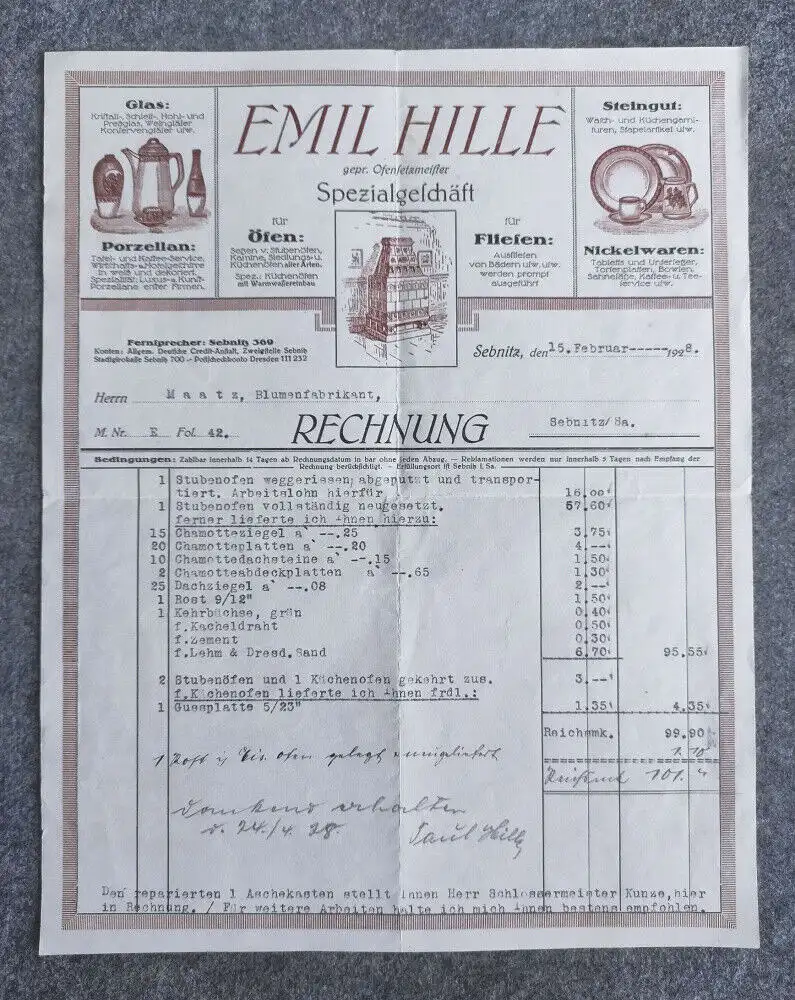 Glas:
Kristall-, Schleif-, Hohl- und
Preßglas, Weingläser
Konservengläser usw.
Porzellan:
Tafel- und Kaffee-Service,
Wirtschafts- u. Hotelgeschirre
in weiß und dekoriert.
Spezialität: Luxus- u. Kunst-
Porzellane erster Firmen.
EMIL HILLE
gepr. Ofensetzmeister
Spezialgeschäft
für
Öfen:
Setzen v. Stubenöfen,
Kamine, Siedlungs- u.
Küchenöfen aller Arten.
Spez.: Küchenöfen
mit Warmwassereinbau
für
Fliesen:
Ausfliesen
von Bädern usw. usw.
werden prompt
ausgeführt
Steingut:
Wasch- und Küchengarni-
turen, Stapelartikel usw.
Nickelwaren:
Tabletts und Untersetzer,
Tortenplatten, Bowlen,
Sahnesäße, Kaffee- u. Tee-
service usw.
Fernsprecher: Sebnitz 369
Konten: Allgem. Deutsche Credit-Anstalt, Zweigstelle Sebnitz
Stadtgirokasse Sebnitz 700 - Postscheckkonto Dresden 111 232
Sebnitz, den 15.Februar----- 1928.
Herrn Maatz, Blumenfabrikant,
M. Nr. E Fol. 42.
RECHNUNG
Sebnitz/Sa.
Bedingungen: Zahlbar innerhalb 14 Tagen ab Rechnungsdatum in bar ohne jeden Abzug. — Reklamationen werden nur innerhalb 3 Tagen nach Empfang der
Rechnung berücksichtigt. — Erfüllungsort ist Sebnitz i. Sa.
1 Stubenofen weggerissen, abgeputzt und transpor-
tiert. Arbeitslohn hierfür 16.00
1 Stubenofen vollständig neugesetzt. 57.60
ferner lieferte ich Ihnen hierzu:
15 Chamotteziegel a` --.25 3.75
20 Chamotteplatten a` --.20 4.--
10 Chamottedachsteine a` --.15 1.50
2 Chamotteabdeckplatten a` --.65 1.30
25 Dachziegel a` --.08 2.--
1 Rost 9/12" 1.50
1 Kehrbüchse, grün 0.40
f.Kacheldraht 0.50
f.Zement 0.30
f.Lehm & Dresd.Sand 6.70 95.55
2 Stubenöfen und 1 Küchenofen gekehrt zus. 3.--
f.Küchenofen lieferte ich Ihnen frdl.:
1 Gussplatte 5/23" 1.35 4.35
Reichsmk. 99.90
1 Rost 1.10
101.
dankend erhalten
d. 24./4. 28. Paul Hille
Den reparierten 1 Aschekasten stellt Ihnen Herr Schlossermeister Kunze, hier
in Rechnung. / Für weitere Arbeiten halte ich mich Ihnen bestens empfohlen.